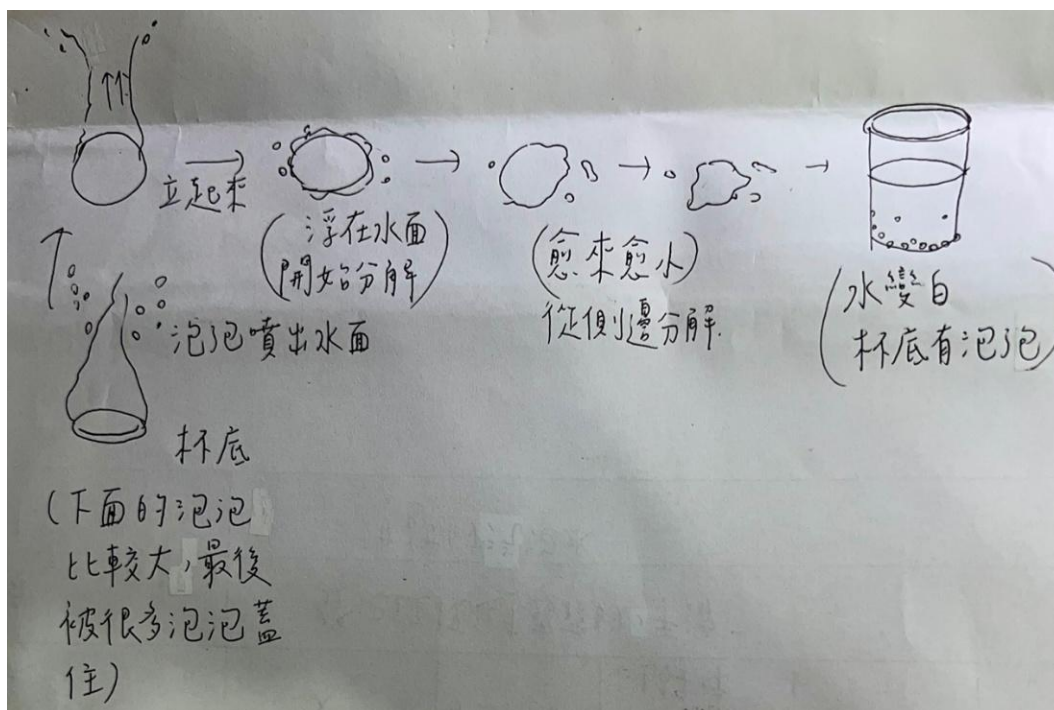 立起來
(浮在水面
開始分解)
(愈來愈小)
從側邊分解.
(水變白
杯底有泡泡)
泡泡噴出水面
杯底
(下面的泡泡
比較大,最後
被很多泡泡蓋
住)